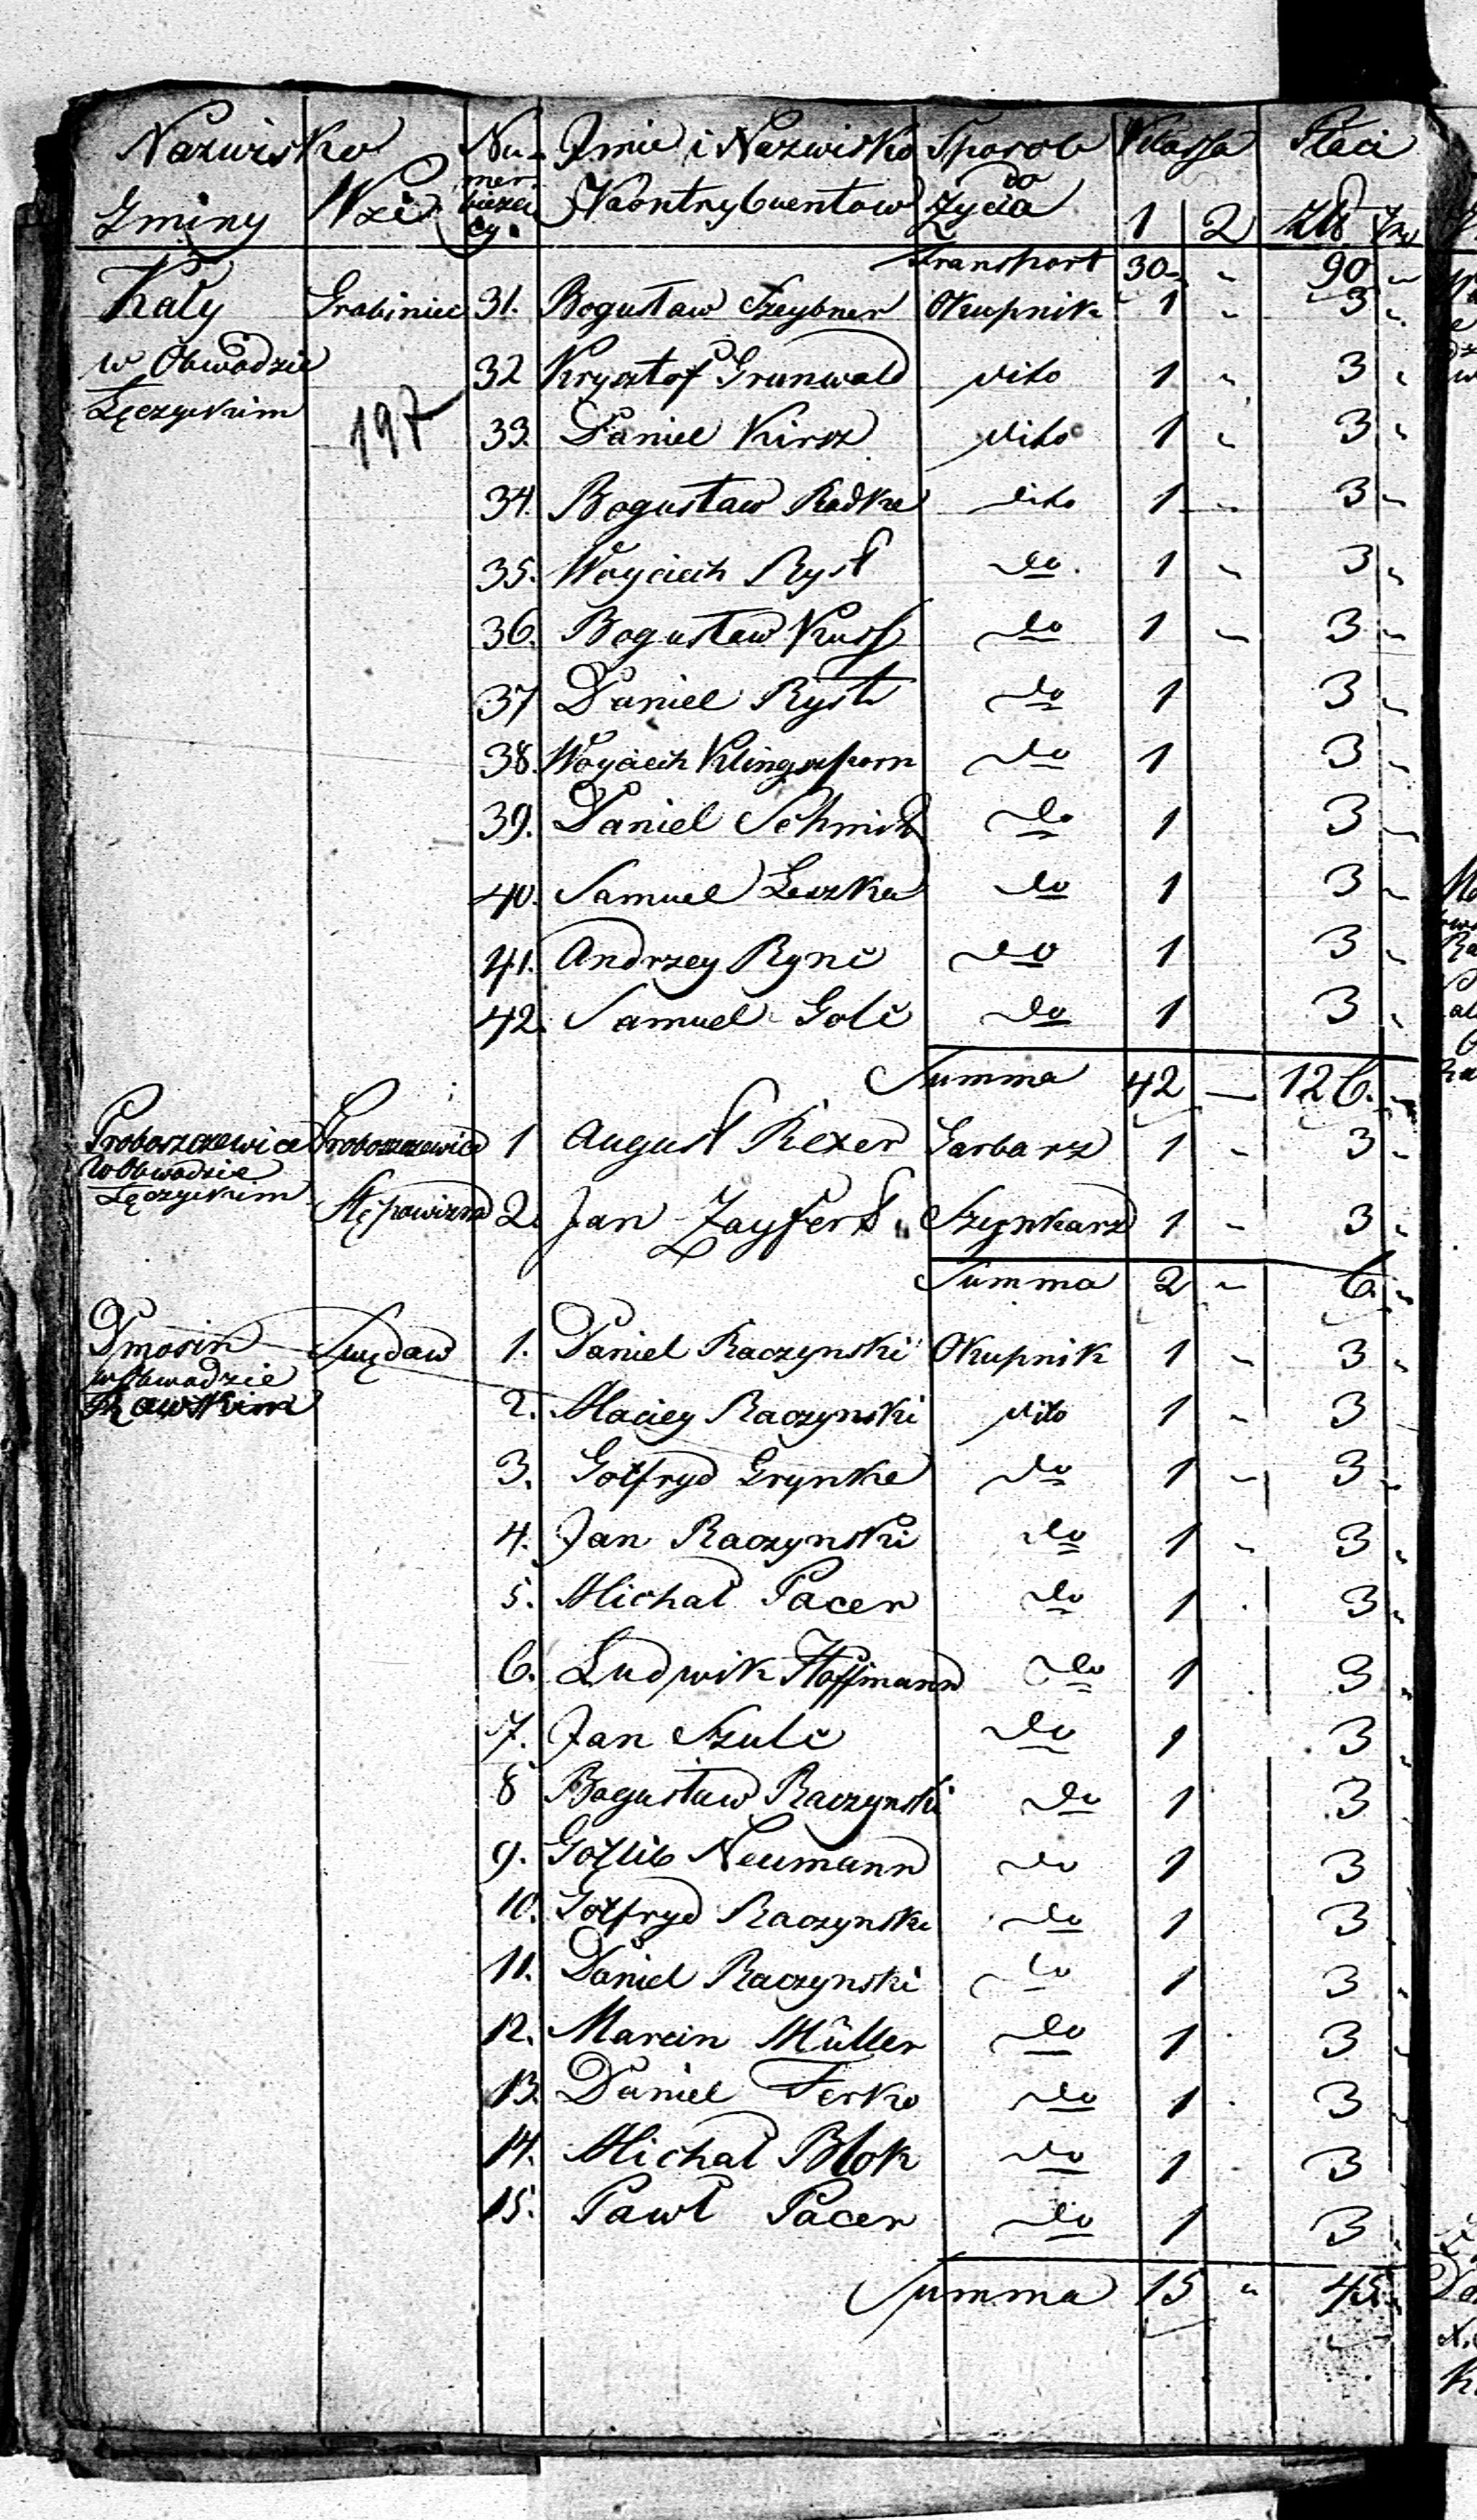 Nazwisko Nu- Jmie i Nazwisko Sposob Klassa Płaci
Gminy Wsi mer bieżący. Kontrybuentow do Życia 1 2 Złł gr
Transport 30 " 90 "
Kały Grabiniec 31. Bogusław Szeybner Okupnik 1 " 3 "
w Obwodzie 32 Krysztof Grunwald dito 1 " 3 "
Łęczyckim 197 33. Daniel Kirsz dito 1 " 3 "
34. Bogusław Radke dito 1 " 3 "
35. Woyciech Ryst do. 1 " 3 "
36. Bogusław Kuss do 1 " 3 "
37 Daniel Ryst do 1 3 "
38. Woyciech Klingszporn do 1 3 "
39. Daniel Schmidt do 1 3 "
40. Samuel Leszke do 1 3 "
41. Andrzey Rync do 1 3 "
42. Samuel Golc do 1 3 "
Summa 42 — 126. "
Proboszczewice Proboszczewice 1 August Rexer Garbarz 1 " 3 "
w Obwodzie
Łęczyckim Stępowizna 2. Jan Zayfert. Szynkarz 1 " 3 "
Summa 2 " 6. "
Dmosin 1. Daniel Raczynski Okupnik 1 " 3 "
w Obwodzie
Rawskim 2. Maciey Raczynski dito 1 " 3
3. Gotfryd Grynke do 1 " 3 "
4. Jan Raczynski do 1 " 3 "
5. Michał Pacer do 1 3 "
6. Ludwik Hoffmann do 1 3 "
7. Jan Szulc do 1 3 "
8 Bogusław Raczynski do 1 3
9. Gotlib Neumann do 1 3
10. Gotfryd Raczynski do 1 3
11. Daniel Raczynski do 1 3 "
12. Marcin Müller do 1 3 "
13. Daniel Ferko do 1 3
14. Michał Blok do 1 3
15. Pawł Pacer do 1 3
Summa 15 " 45 "